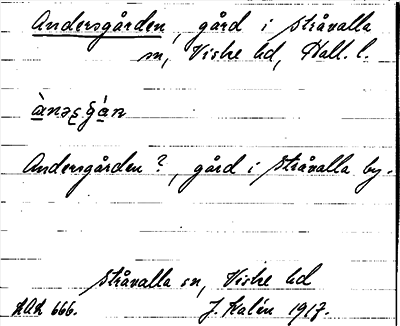 Andersgården, gård i Stråvalla
sn, Viske hd, Hall. l.
Andersgården?, gård i Stråvalla by.
Stråvalla sn, Viske hd
666. J. Kalén 1917.